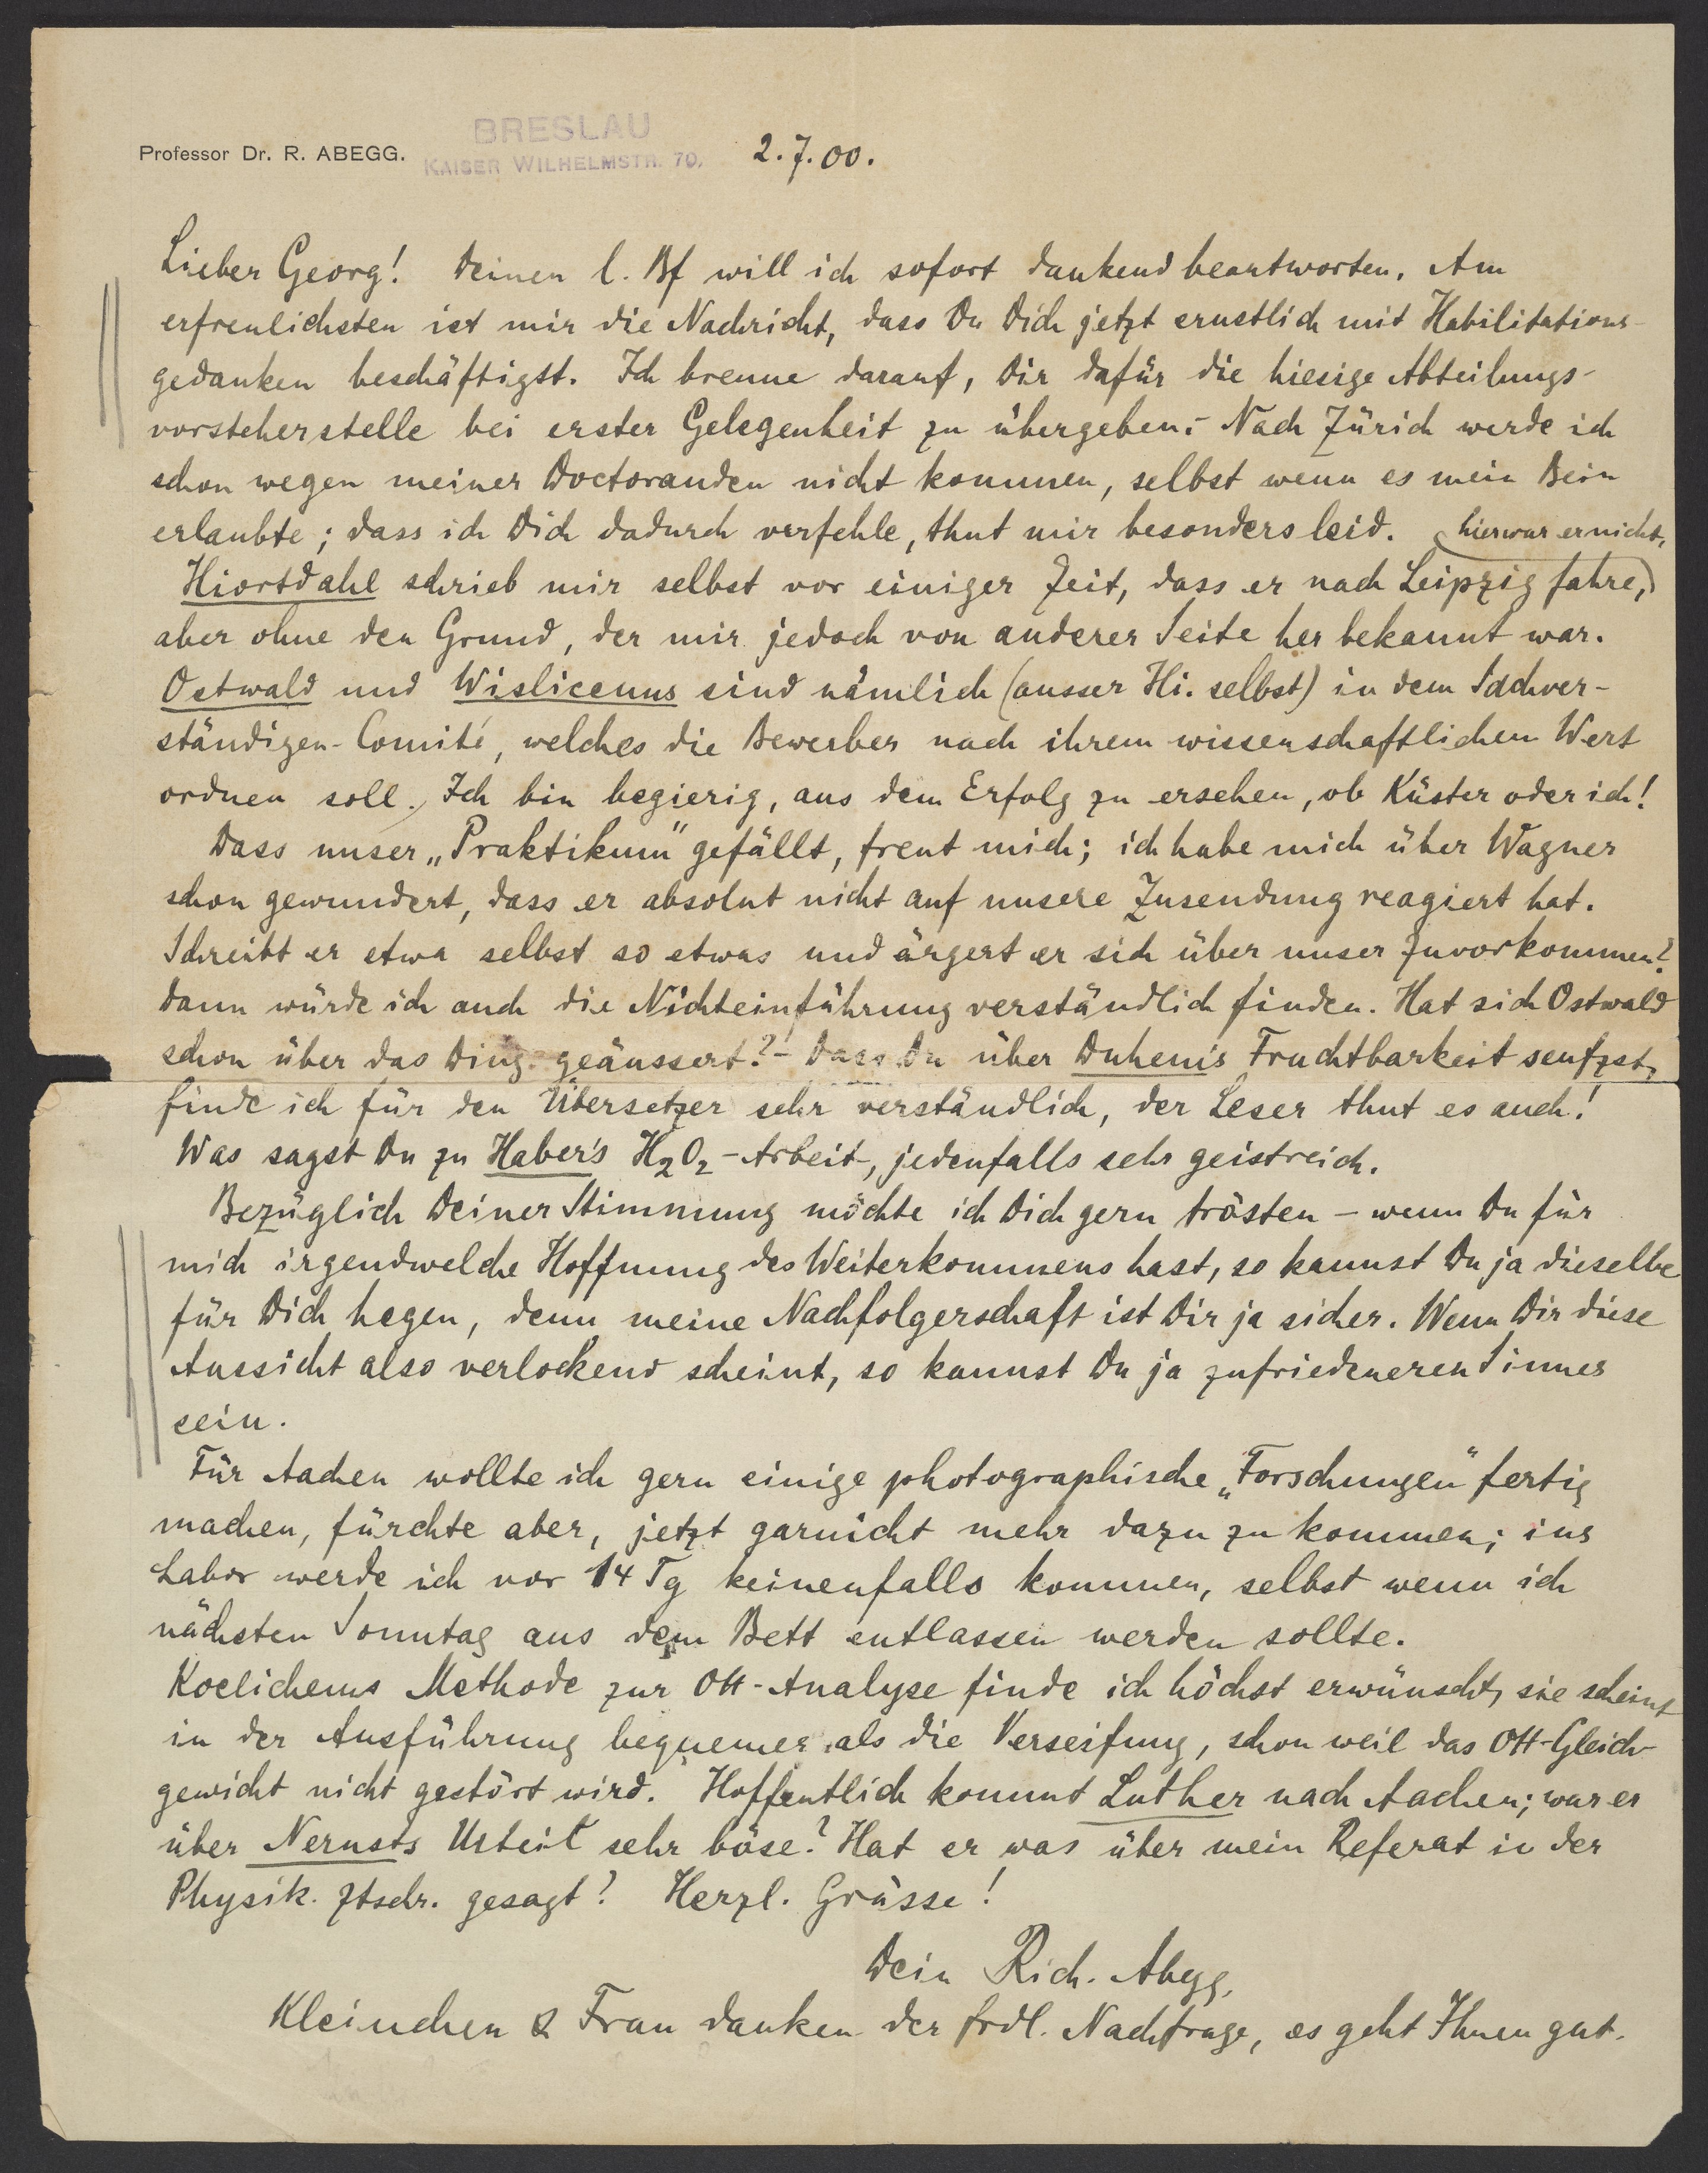 BRESLAU
Professor Dr. R. ABEGG. KAISER WILHELMSTR. 70. 2.7.00.
Lieber Georg! Deinen l. Bf will ich sofort dankend beantworten. Am
erfreulichsten ist mir die Nachricht, dass Du Dich jetzt ernstlich mit Habilitations-
gedanken beschäftigst. Ich brenne darauf, Dir dafür die hiesige Abteilungs-
vorsteherstelle bei erster Gelegenheit zu übergeben. – Nach Zürich werde ich
schon wegen meiner Doctoranden nicht kommen, selbst wenn es mein Bein
erlaubte; dass ich Dich dadurch verfehle, thut mir besonders leid. (hier war er nicht,
Hiortdahl schrieb mir selbst vor einiger Zeit, dass er nach Leipzig fahre,)
aber ohne den Grund, der mir jedoch von anderer Seite her bekannt war.
Ostwald und Wislicenus sind nämlich (ausser Hi. selbst) in dem Sachver-
ständigen-Comité, welches die Bewerber nach ihrem wissenschaftlichen Wert
ordnen soll. Ich bin begierig, aus dem Erfolg zu ersehen, ob Küster oder ich!
Dass unser „Praktikum" gefällt, freut mich; ich habe mich über Wagner
schon gewundert, dass er absolut nicht auf unsere Zusendung reagiert hat.
Schreibt er etwa selbst so etwas und ärgert er sich über unser Zuvorkommen?
Dann würde ich auch die Nichteinführung verständlich finden. Hat sich Ostwald
schon über das Ding geäussert? – Dass Du über Duhem's Fruchtbarkeit seufzst,
finde ich für den Übersetzer sehr verständlich, der Leser thut es auch!
Was sagst Du zu Haber's H2O2-Arbeit, jedenfalls sehr geistreich.
Bezüglich Deiner Stimmung möchte ich Dich gern trösten – wenn Du für
mich irgendwelche Hoffnung des Weiterkommens hast, so kannst Du ja dieselbe
für Dich hegen, denn meine Nachfolgerschaft ist Dir ja sicher. Wenn Dir diese
Aussicht also verlockend scheint, so kannst Du ja zufriedeneren Sinnes
sein.
Für Aachen wollte ich gern einige photographische „Forschungen" fertig
machen, fürchte aber, jetzt garnicht mehr dazu zu kommen; ins
Labor werde ich vor 14 Tg keinenfalls kommen, selbst wenn ich
nächsten Sonntag aus dem Bett entlassen werden sollte.
Koelichens Methode zur OH-Analyse finde ich höchst erwünscht, sie scheint
in der Ausführung bequemer als die Verseifung, schon weil das OH-Gleich-
gewicht nicht gestört wird. Hoffentlich kommt Luther nach Aachen; war er
über Nernsts Urteil sehr böse? Hat er was über mein Referat in der
Physik. Ztschr. gesagt? Herzl. Grüsse!
Dein Rich. Abegg.
Kleinchen & Frau danken der frdl. Nachfrage, es geht Ihnen gut.